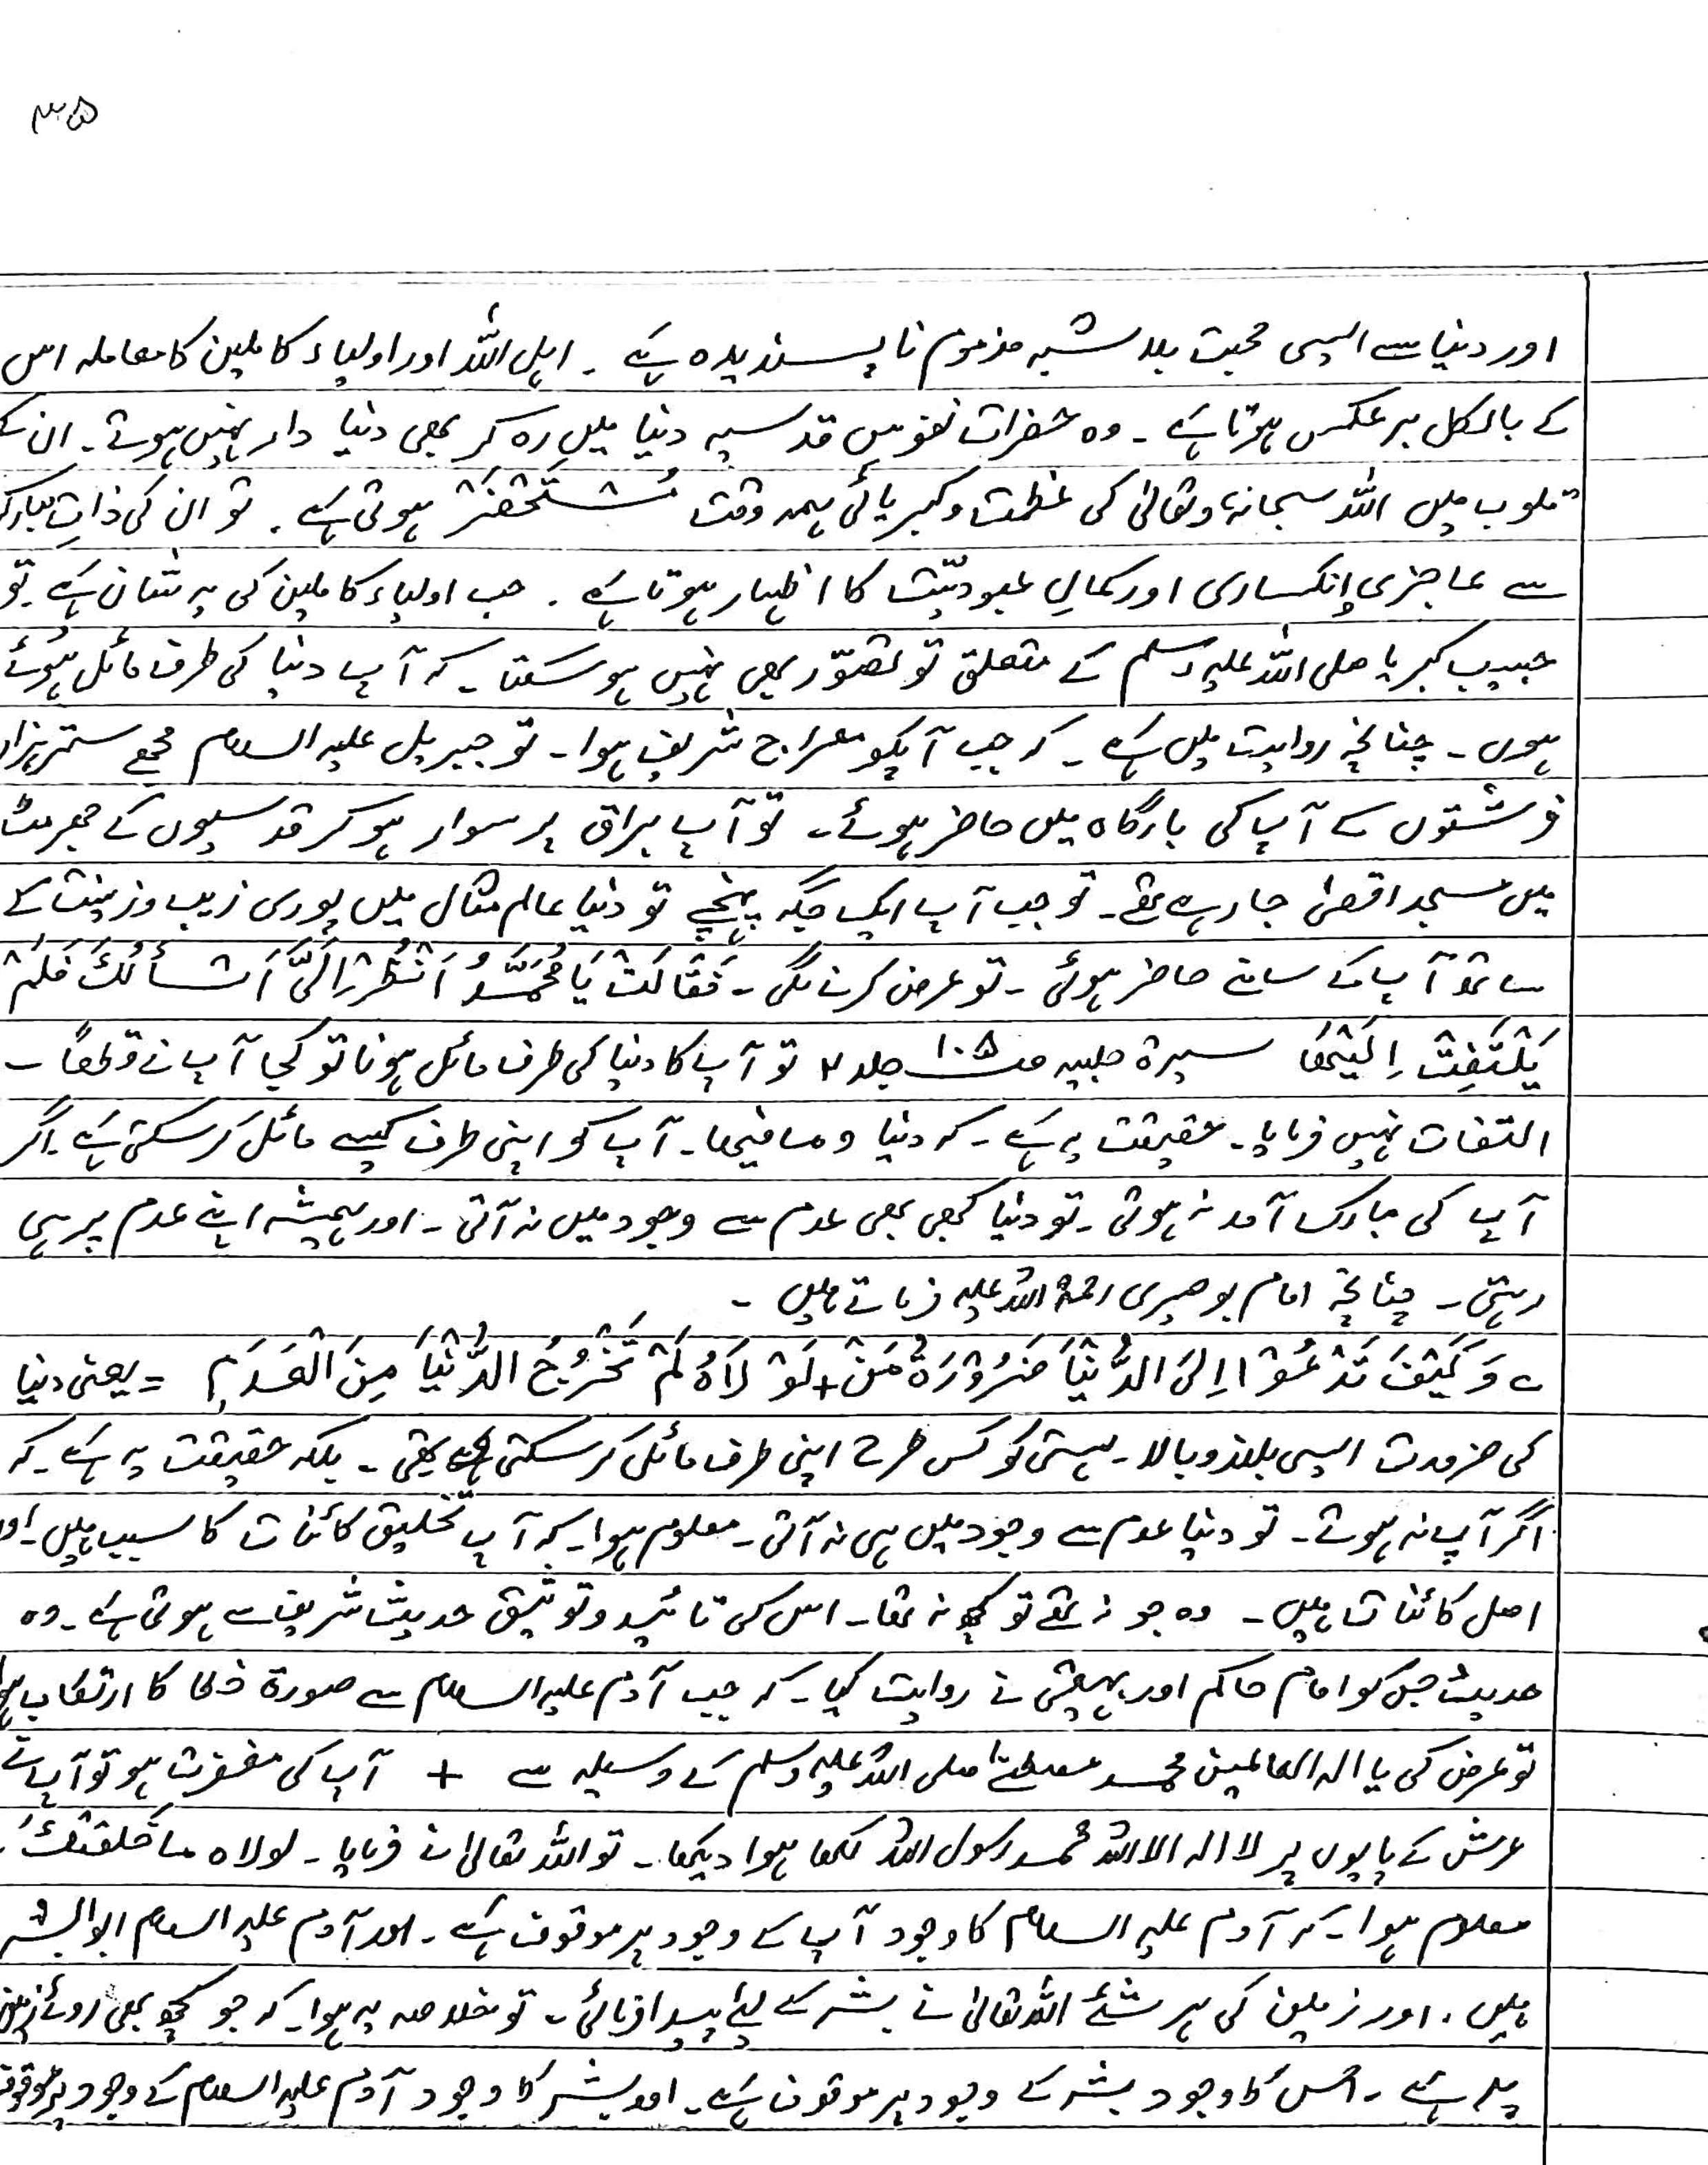 ۳۵
اور دنیا سے ایسی محبت بلا شبہ مذموم نا پسندیدہ ہے ۔ اہل اللہ اور اولیاء کاملین کا معاملہ اس
کے بالکل برعکس ہوتا ہے ۔ وہ حضرات نفوس قدسیہ دنیا میں رہ کر بھی دنیا دار نہیں ہوتے ۔ ان کے
قلوب میں اللہ سبحانہٗ وتعالیٰ کی عظمت وکبریائی ہمہ وقت مُسْتَحْضَرْ ہوتی ہے ۔ تو ان کی ذاتِ مبارکہ
سے عاجزی انکساری اور کمالِ عبودیّت کا اظہار ہوتا ہے ۔ جب اولیاء کاملین کی یہ شان ہے ۔ تو
حبیب کبریا صلی اللہ علیہ وسلم کے متعلق تو تصوّر بھی نہیں ہو سکتا ۔ کہ آپ دنیا کی طرف مائل ہوئے
ہوں ۔ چنانچہ روایت میں ہے ۔ کہ جب آپکو معراج شریف ہوا ۔ تو جبریل علیہ السلام مجمع ستر ہزار
فرشتوں کے آپ کی بارگاہ میں حاضر ہوئے ۔ تو آپ براق پر سوار ہو کر قدسیوں کے جھرمٹ
میں مسجد اقصیٰ جا رہے تھے ۔ تو جب آپ ایک جگہ پہنچے تو دنیا عالم مثال میں پوری زیب وزینت کے
ساتھ آپ کے سامنے حاضر ہوئی ۔ تو عرض کرنے لگی ۔ فَقَالَتْ یَا مُحَمَّدُ اُنْظُرْ اِلَیَّ اَسْأَلُكَ فَلَمْ
یَلْتَفِتْ اِلَیْھَا سیرۃ حلبیہ صـ ۱۰۵ جلد ۲ تو آپ کا دنیا کی طرف مائل ہونا تو کجا آپ نے قطعاً ۔
التفات نہیں فرمایا ۔ حقیقت یہ ہے ۔ کہ دنیا و مافیھا ۔ آپ کو اپنی طرف کیسے مائل کر سکتی ہے ۔ اگر
آپ کی مبارک آمد نہ ہوتی ۔ تو دنیا کبھی بھی عدم سے وجود میں نہ آتی ۔ اور ہمیشہ اپنے عدم پر ہی
رہتی ۔ چنانچہ امام بوصیری رحمۃ اللہ علیہ فرماتے ہیں ۔
؎ وَکَیْفَ تَدْعُوْا اِلَی الدُّنْیَا ضَرُوْرَۃُ مَنْ + لَوْ لَاہُ لَمْ تَخْرُجُ الدُّنْیَا مِنَ الْعَدَمِ = یعنی دنیا
کی ضرورت ایسی بلند وبالا ۔ ہستی کو کس طرح اپنی طرف مائل کر سکتی تھی ۔ بلکہ حقیقت یہ ہے ۔ کہ
اگر آپ نہ ہوتے ۔ تو دنیا عدم سے وجود میں ہی نہ آتی ۔ معلوم ہوا ۔ کہ آپ تخلیق کائنات کا سبب ہیں ۔ اور
اصل کائنات ہیں ۔ وہ جو نہ تھے تو کچھ نہ تھا ۔ اس کی تائید وتوثیق حدیث شریف سے ہوتی ہے ۔ وہ
حدیث جس کو امام حاکم اور بیہقی نے روایت کیا ۔ کہ جب آدم علیہ السلام سے صورۃ خطا کا ارتکاب ہوا
تو عرض کی یا الہ العالمین محمد مصطفےٰ صلی اللہ علیہ وسلم کے وسیلہ سے + آپ کی مغفرت ہو تو آپ نے
عرش کے پایوں پر لا الہ الا اللہ محمد رسول اللہ لکھا ہوا دیکھا ۔ تو اللہ تعالیٰ نے فرمایا ۔ لولاہ ما خلقتُكَ ۔
معلوم ہوا ۔ کہ آدم علیہ السلام کا وجود آپ کے وجود پر موقوف ہے ۔ اور آدم علیہ السلام ابو البشر
ہیں ۔ اور زمین کی ہر شئے اللہ تعالیٰ نے بشر کے لئے پیدا فرمائی ۔ تو خلاصہ یہ ہوا ۔ کہ جو کچھ بھی روئے زمین
پر ہے ۔ اس کا وجود بشر کے وجود پر موقوف ہے ۔ اور بشر کا وجود آدم علیہ السلام کے وجود پر موقوف